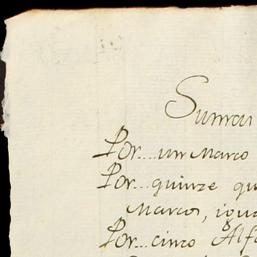 Suman
Por...un Marco
Por...quinze qu
Marcos, igua
Por...cinco Alfa